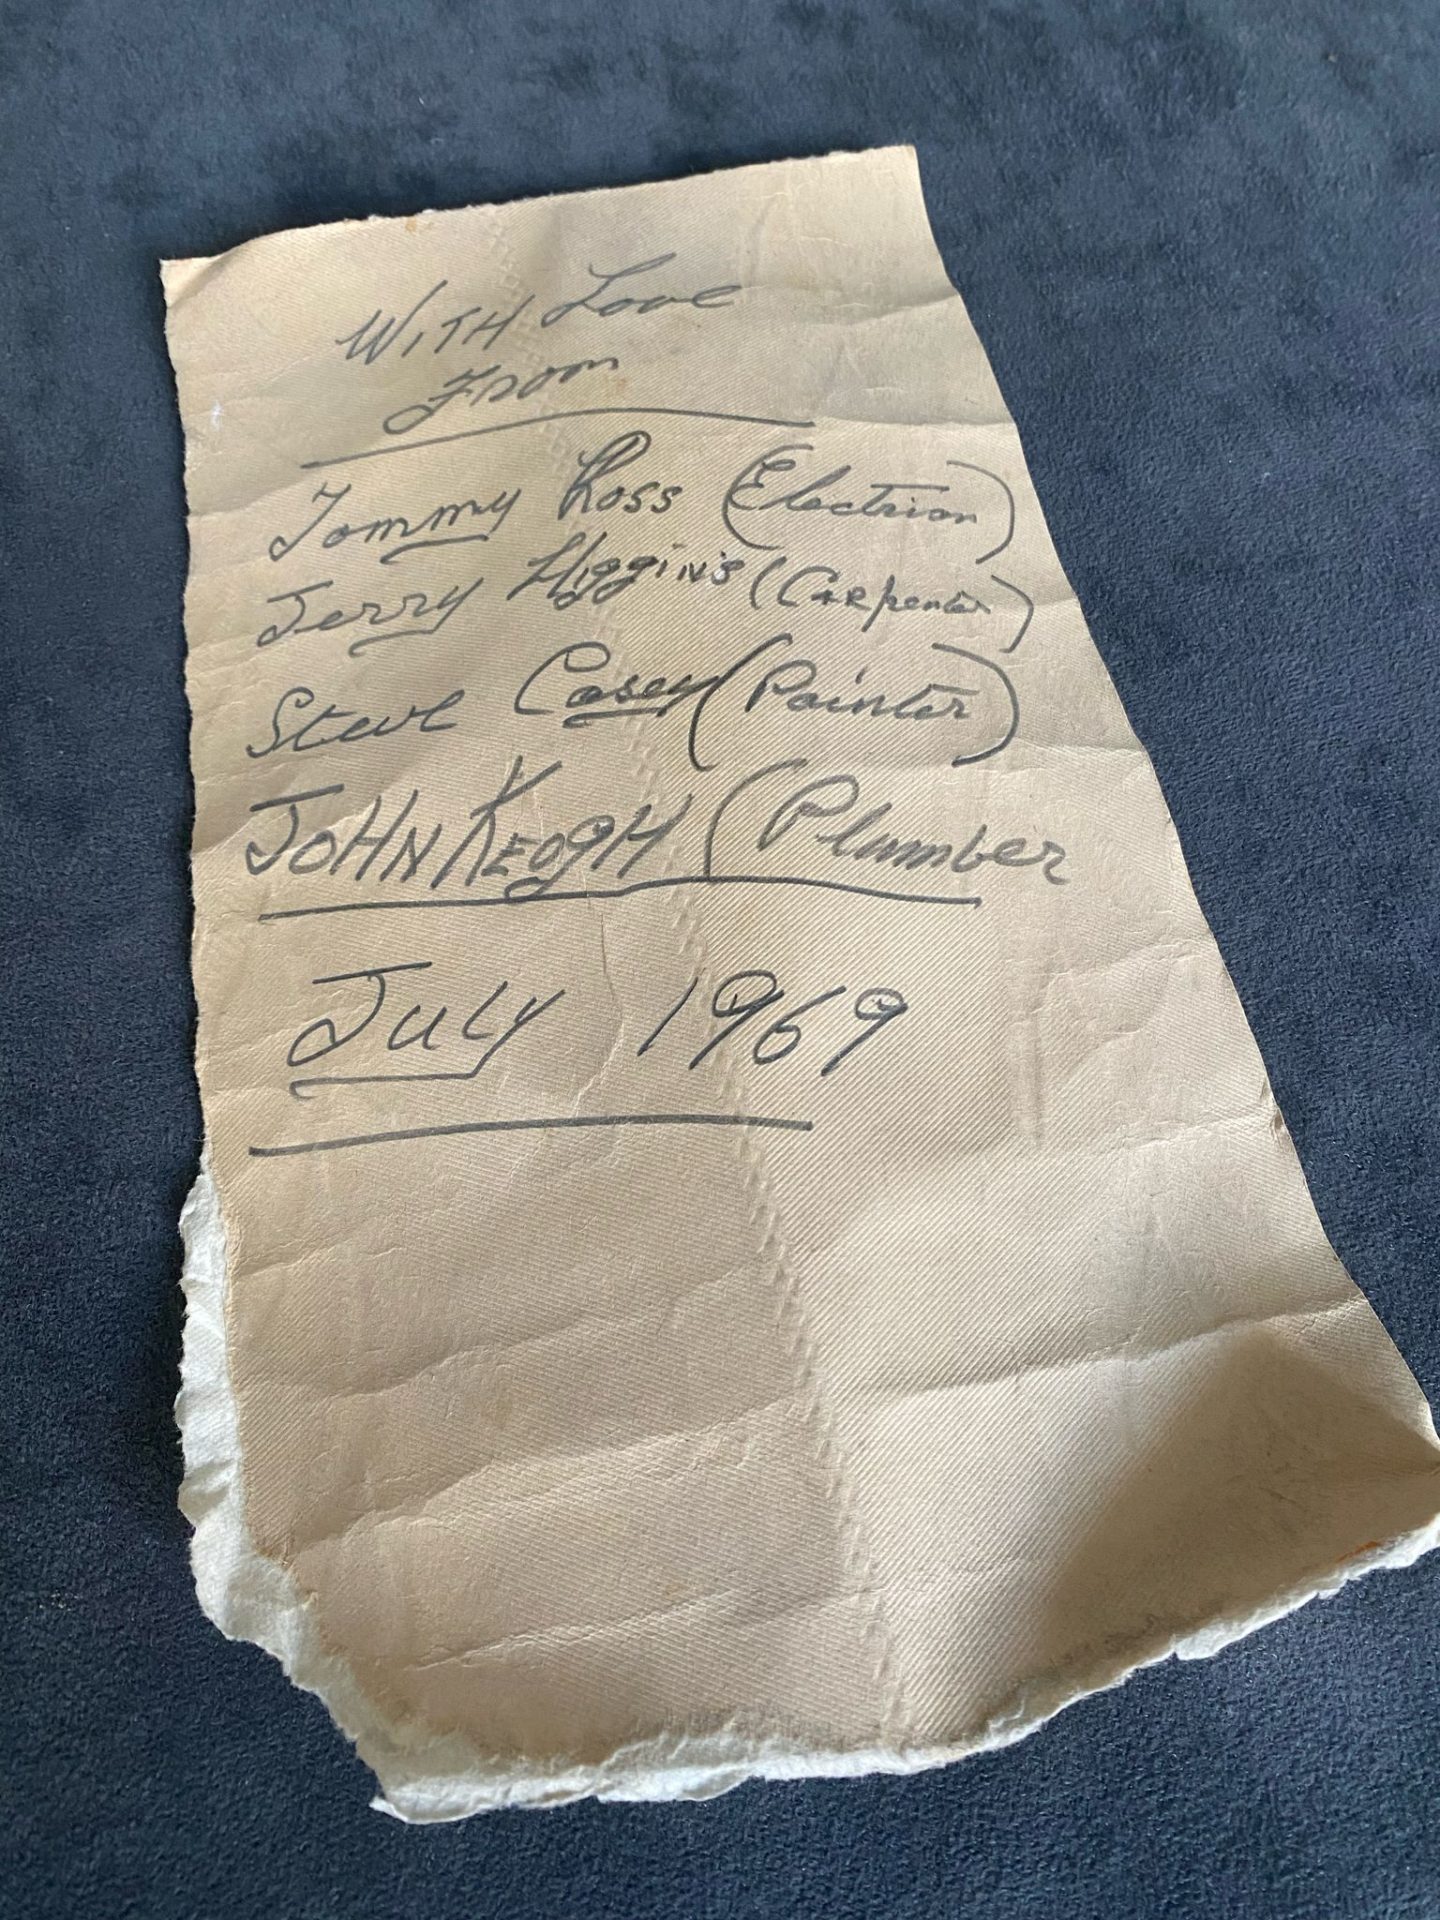 WITH Love
From
Tommy Ross (Electrion)
Jerry Higgins (CARpenter)
Steve Casey (Painter)
JOHN KEOGH (Plumber
July 1969